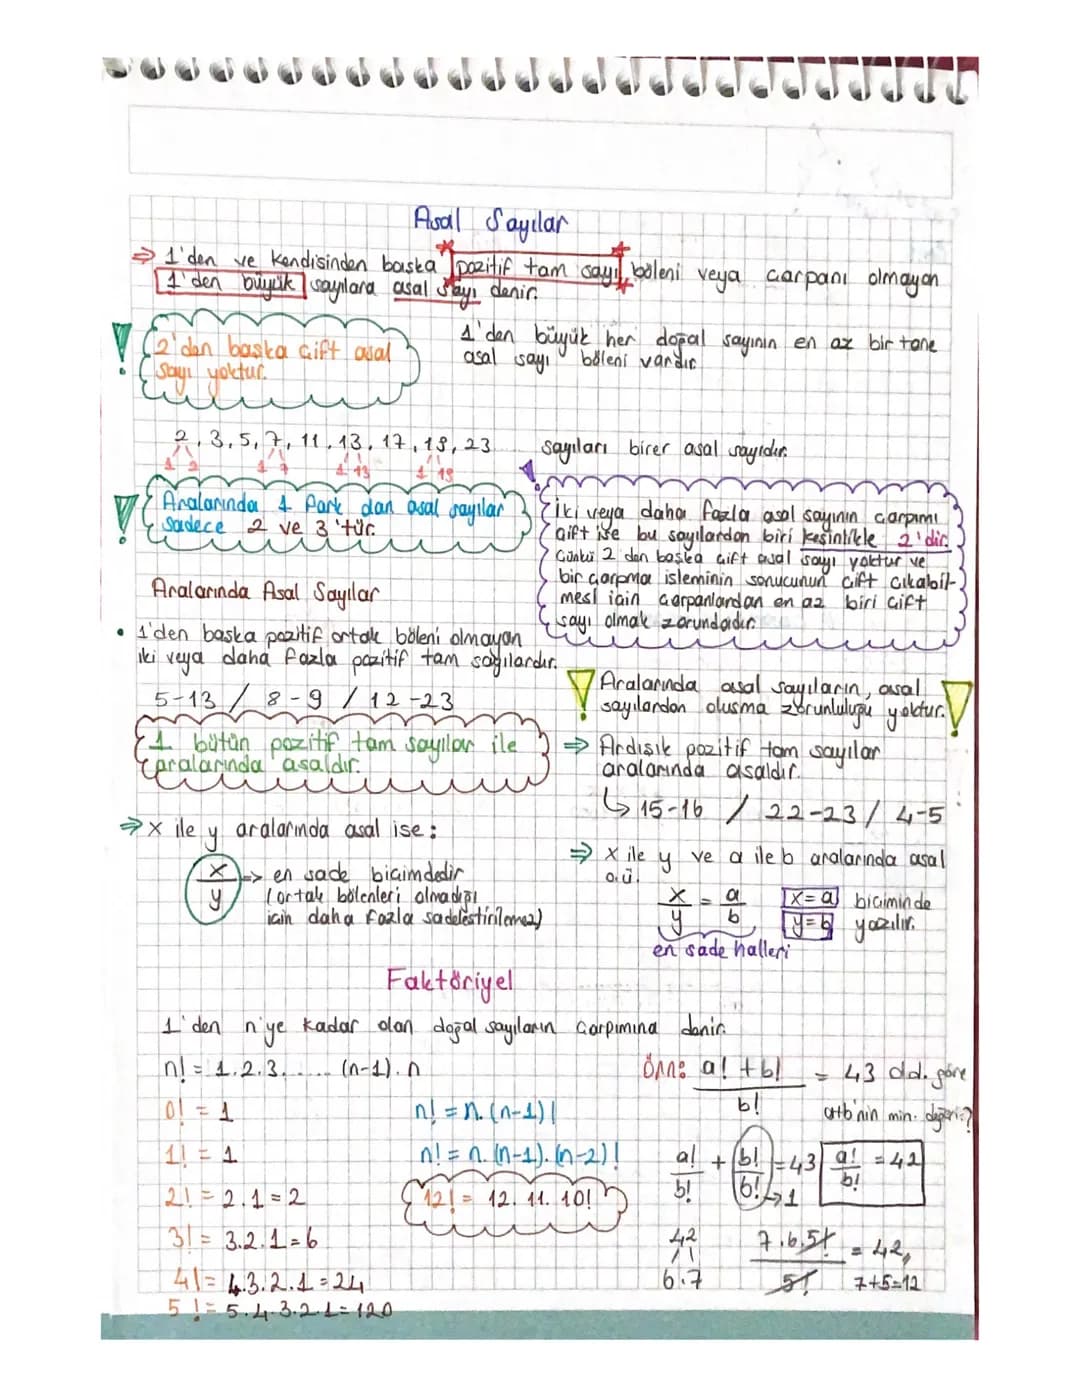 Asal Sayılar
⇒ 1'den ve kendisinden başka pozitif tam sayı böleni veya çarpanı olmayan
1'den büyük sayılara asal sayı denir.
! 2'den başka çift asal
sayı yoktur.
1'den büyük her doğal sayının en az bir tane
asal sayı böleni vardır
2, 3, 5, 7, 11, 13, 17, 19, 23 sayıları birer asal sayıdır.
1 2 1 7 1 13 1 19
! Aralarında 1 fark olan asal sayılar
sadece 2 ve 3'tür.
İki veya daha fazla asal sayının çarpımı
çift ise bu sayılardan biri kesinlikle 2'dir.
Çünkü 2 den başka çift asal sayı yoktur ve
bir çarpma işleminin sonucunun çift çıkabil-
mesi için çarpanlardan en az biri çift
sayı olmak zorundadır.
Aralarında Asal Sayılar
• 1'den başka pozitif ortak böleni olmayan
iki veya daha fazla pozitif tam sayılardır.
5-13 / 8-9 / 12-23
1 bütün pozitif tam sayılar ile
aralarında asaldır.
! Aralarında asal sayıların, asal
sayılardan oluşma zorunluluğu yoktur. !
⇒ Ardışık pozitif tam sayılar
aralarında asaldır.
↳ 15-16 / 22-23 / 4-5
⇒ x ile y aralarında asal ise:
x/y → en sade biçimdedir
(ortak bölenleri olmadığı
için daha fazla sadeleştirilemez)
⇒ x ile y ve a ile b aralarında asal
o.ü.
x/y = a/b x=a biçiminde
y=b yazılır.
en sade halleri
Faktöriyel
1'den n'ye kadar olan doğal sayıların çarpımına denir.
n! = 1.2.3. .... (n-1).n
0! = 1
1! = 1
2! = 2.1=2
3! = 3.2.1=6
4! = 4.3.2.1=24
5! = 5.4.3.2.1=120
n! = n.(n-1)!
n! = n.(n-1).(n-2)!
12! = 12.11.10!
Örn: a!+b!/b! = 43 old. göre
a+b'nin min. değeri?
a!/b! + b!/b! = 43 a!/b! = 42
→1
42
6.7
7.6.5!/5! = 42,
7+5=12